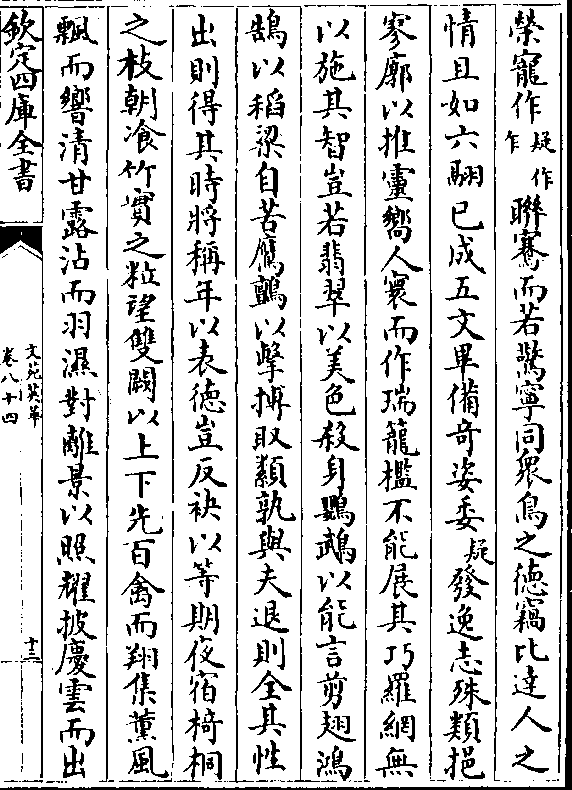 榮寵作疑作乍聯騫而若驚寧同衆鳥之德竊比達人之
情且如六翮已成五文畢備奇姿委疑發逸志殊類挹
寥廓以推靈嚮人寰而作瑞籠檻不能展其巧羅網無
以施其智豈若翡翠以美色殺身鸚鵡以能言剪翅鴻
鵠以稻梁自苦鷹鸇以擊搏取纇孰與夫退則全其性
出則得其時將稱年以表德豈反袂以等期夜宿椅桐
之枝朝飡竹實之粒望雙闕以上下先百禽而翔集薰風
飄而響清甘露沾而羽濕對離景以照耀披慶雲而出
欽定四庫全書
文苑英華
卷八十四
十三